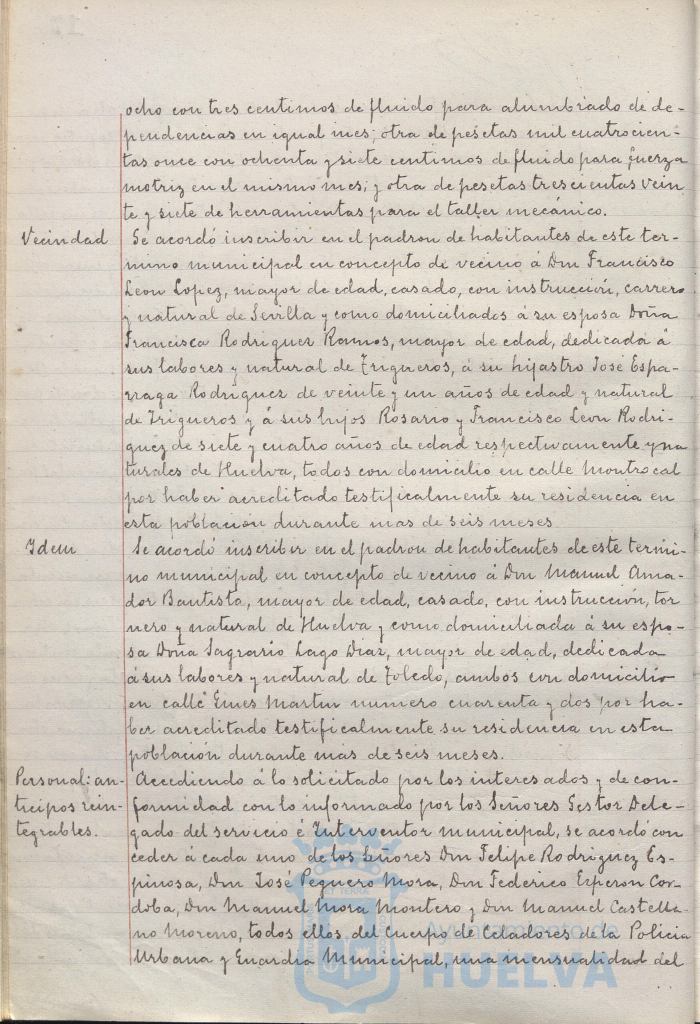 ocho con tres centimos de fluido para alumbrado de de-
pendencias en igual mes; otra de pesetas mil cuatrocien-
tas once con ochenta y siete centimos de fluido para fuerza
motriz en el mismo mes; y otra de pesetas trescientas vein
te y siete de herramientas para el taller mecánico.
Vecindad
Se acordó inscribir en el padron de habitantes de este ter-
mino municipal en concepto de vecino á Don Francisco
Leon Lopez, mayor de edad, casado, con instrucción, carrero
y natural de Sevilla y como domiciliados á su esposa Doña
Francisca Rodriguez Ramos, mayor de edad, dedicada á
sus labores y natural de Trigueros, á su hijastro José Espa-
rraga Rodriguez de veinte y un años de edad y natural
de Trigueros y á sus hijos Rosario y Francisco Leon Rodri-
guez de siete y cuatro años de edad respectivamente y na
turales de Huelva, todos con domicilio en calle Montrocal
por haber acreditado testificalmente su residencia en
esta población durante mas de seis meses
Idem
Se acordó inscribir en el padron de habitantes de este termi-
no municipal en concepto de vecino á Don Manuel Ama-
dor Bautista, mayor de edad, casado, con instrucción, tor
nero y natural de Huelva y como domiciliada á su espo-
sa Doña Sagrario Lago Diaz, mayor de edad, dedicada
á sus labores y natural de Toledo, ambos con domicilio
en calle Martin numero cuarenta y dos por ha-
ber acreditado testificalmente su residencia en esta
población durante mas de seis meses.
Personal: an-
ticipos rein-
tegrables.
Accediendo á lo solicitado por los interesados y de con-
formidad con lo informado por los Señores Gestor Dele-
gado del servicio é Interventor municipal, se acordó con
ceder á cada uno de los Señores Don Felipe Rodriguez Es-
pinosa, Don José Peguero Mora, Don Federico Esperon Cor-
doba, Don Manuel Mora Montero y Don Manuel Castella-
no Moreno, todos ellos del Cuerpo de Celadores de la Policia
Urbana y Guardia Municipal, una mensualidad del
Ayuntamiento de
HUELVA